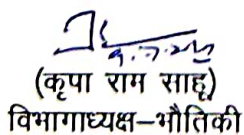 (कृपा राम साहू)
विभागाध्यक्ष–भौतिकी